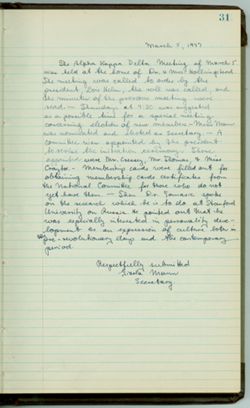 31
March 5, 1937
The Alpha Kappa Delta Meeting of March 5
was held at the home of Dr. & Mrs. Hollingshead.
The meeting was called to order by the
president, Don Helm, the roll was called, and
the minutes of the previous meeting were
read. — Thursday at 4:30 was suggested
as a possible time for a special meeting
concerning election of new members — Miss Mann
was nominated and elected as Secretary. — A
committee was appointed by the president
to revise the initiation ceremony. Those
appointed were Mr. Cressey, Mr. Thomas, & Miss
— Membership cards were filled out for
obtaining membership cards certificates from
the National Committee for those who do not
yet have them — Dr. spoke
on the research which he is to do at Stanford
University on Russia. He pointed out that he
was especially interested in personality devel-
opment as an expression of culture both in
pre-revolutionary days and the contemporary
period.
Respectfully submitted
Mann
Secretary.